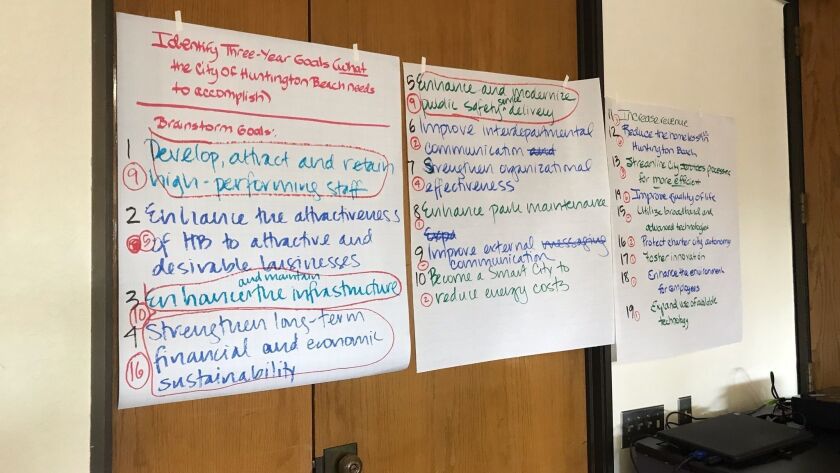 Identify Three-Year Goals (what
the City of Huntington Beach needs
to accomplish)
Brainstorm Goals:
1 Develop, attract and retain
9 high-performing staff
2 Enhance the attractiveness
5 of HB to attractive and
desirable businesses
and maintain
3 Enhance the infrastructure
10
4 Strengthen long-term
financial and economic
16 sustainability
5 Enhance and modernize
service
9 public safety ^ delivery
6 Improve interdepartmental
2 communication and
7 Strengthen organizational
4 effectiveness
8 Enhance park maintenance
1
Expa
9 Improve external messaging
communication
10 Become a Smart City to
2 reduce energy costs
11 Increase revenue
12 Reduce the homeless in
Huntington Beach
13 Streamline City processes
for more efficient
14 Improve quality of life
15 Utilize broadband and
advanced technologies
16 Protect charter city autonomy
17 Foster innovation
18 Enhance the environment
for employees
19 Expand use of available
technology